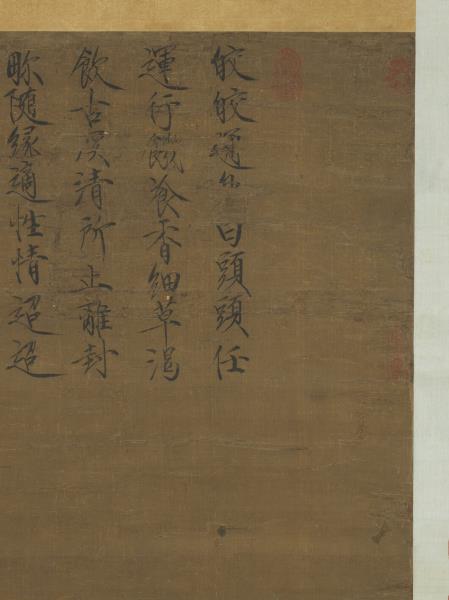 皎皎通白頭頭任
運行飢飡香細草渴
飲古溪清所止離封
畛隨緣適性情迢迢